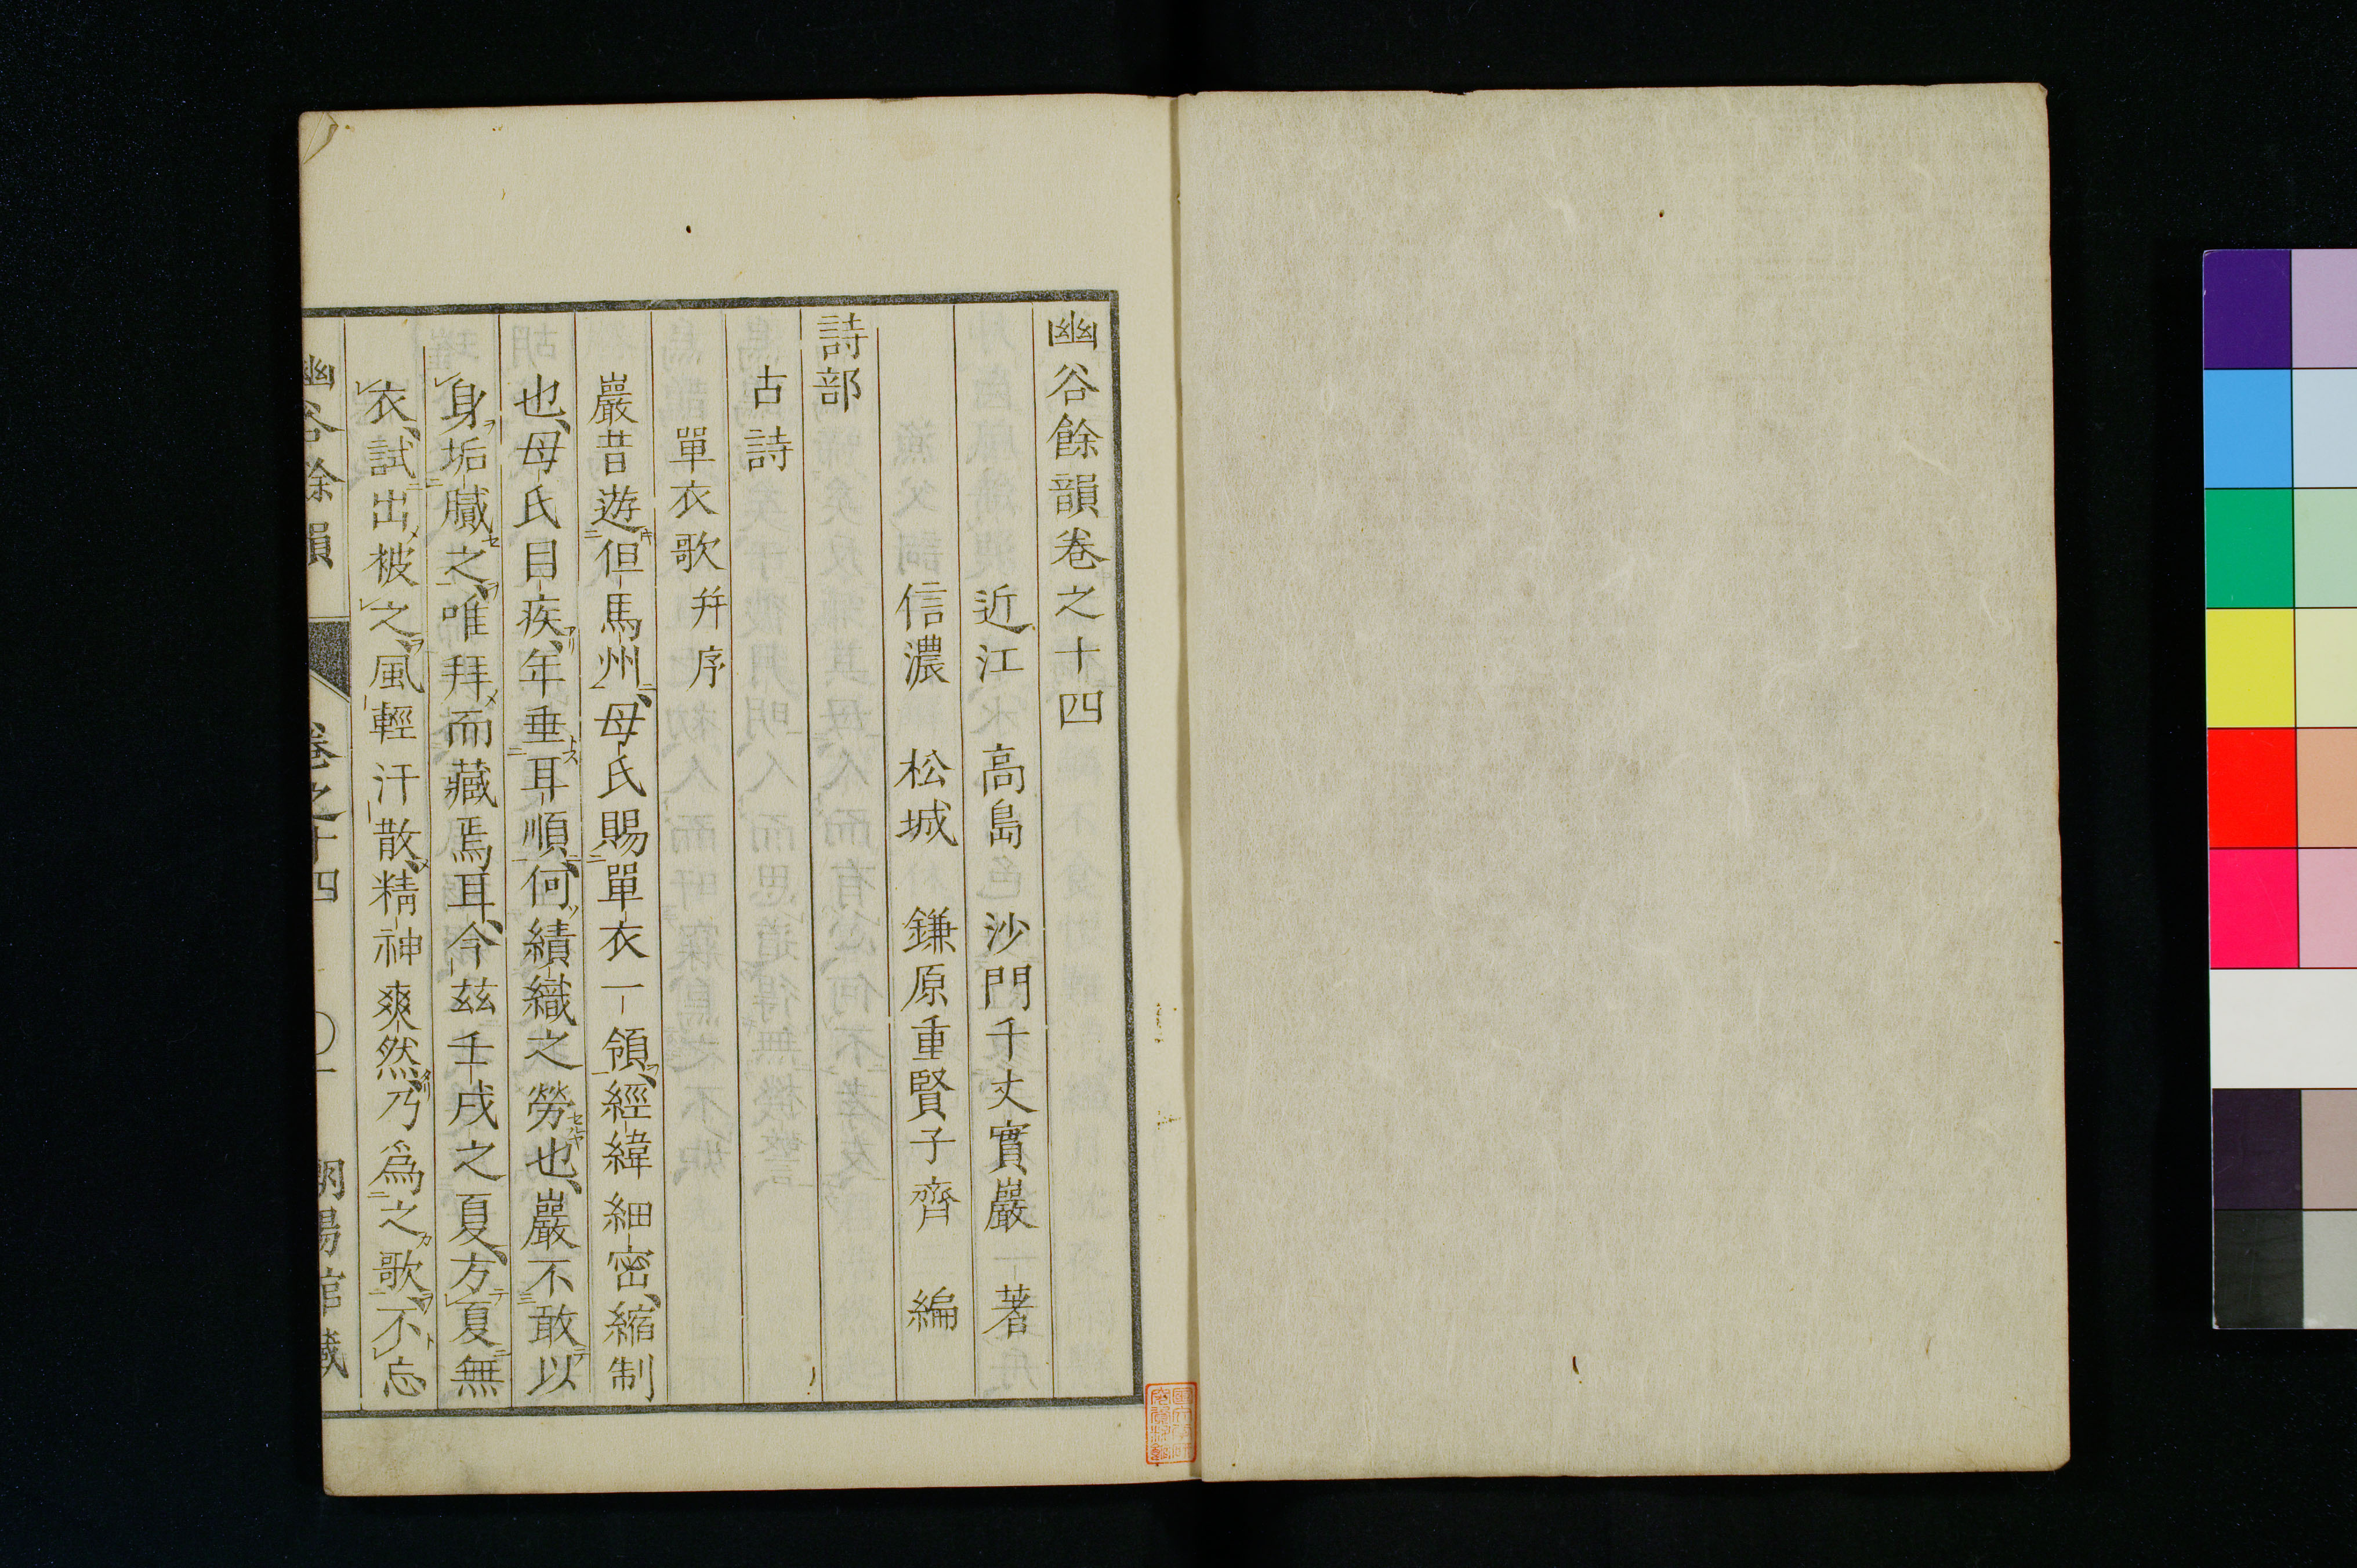 幽谷餘韻卷之十四
近江 高島 沙門千丈實巖 著
信濃 松城 鎌原重賢子齊 編
詩部
古詩
單衣歌并序
巖昔遊但馬州母氏賜單衣一領經緯細密縮制
也母氏目疾年垂耳順何績織之勞也巖不敢以
身垢膩之唯拜而藏焉耳今茲壬戌之夏方夏無
衣試出被之風輕汗散精神爽然乃爲之歌不忘
幽谷餘韻 卷之十四 〇一 朝陽館藏